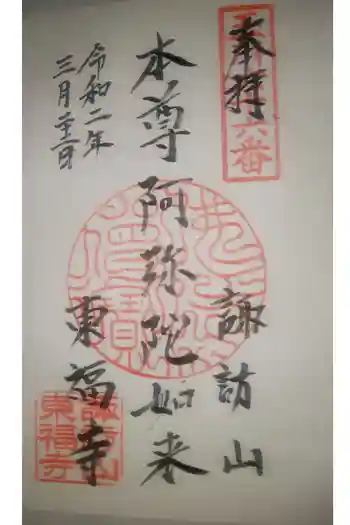 奉拝
六番
諏訪山
本尊阿弥陀如来
令和二年
三月二十二日
東福寺
諏訪山
東福寺